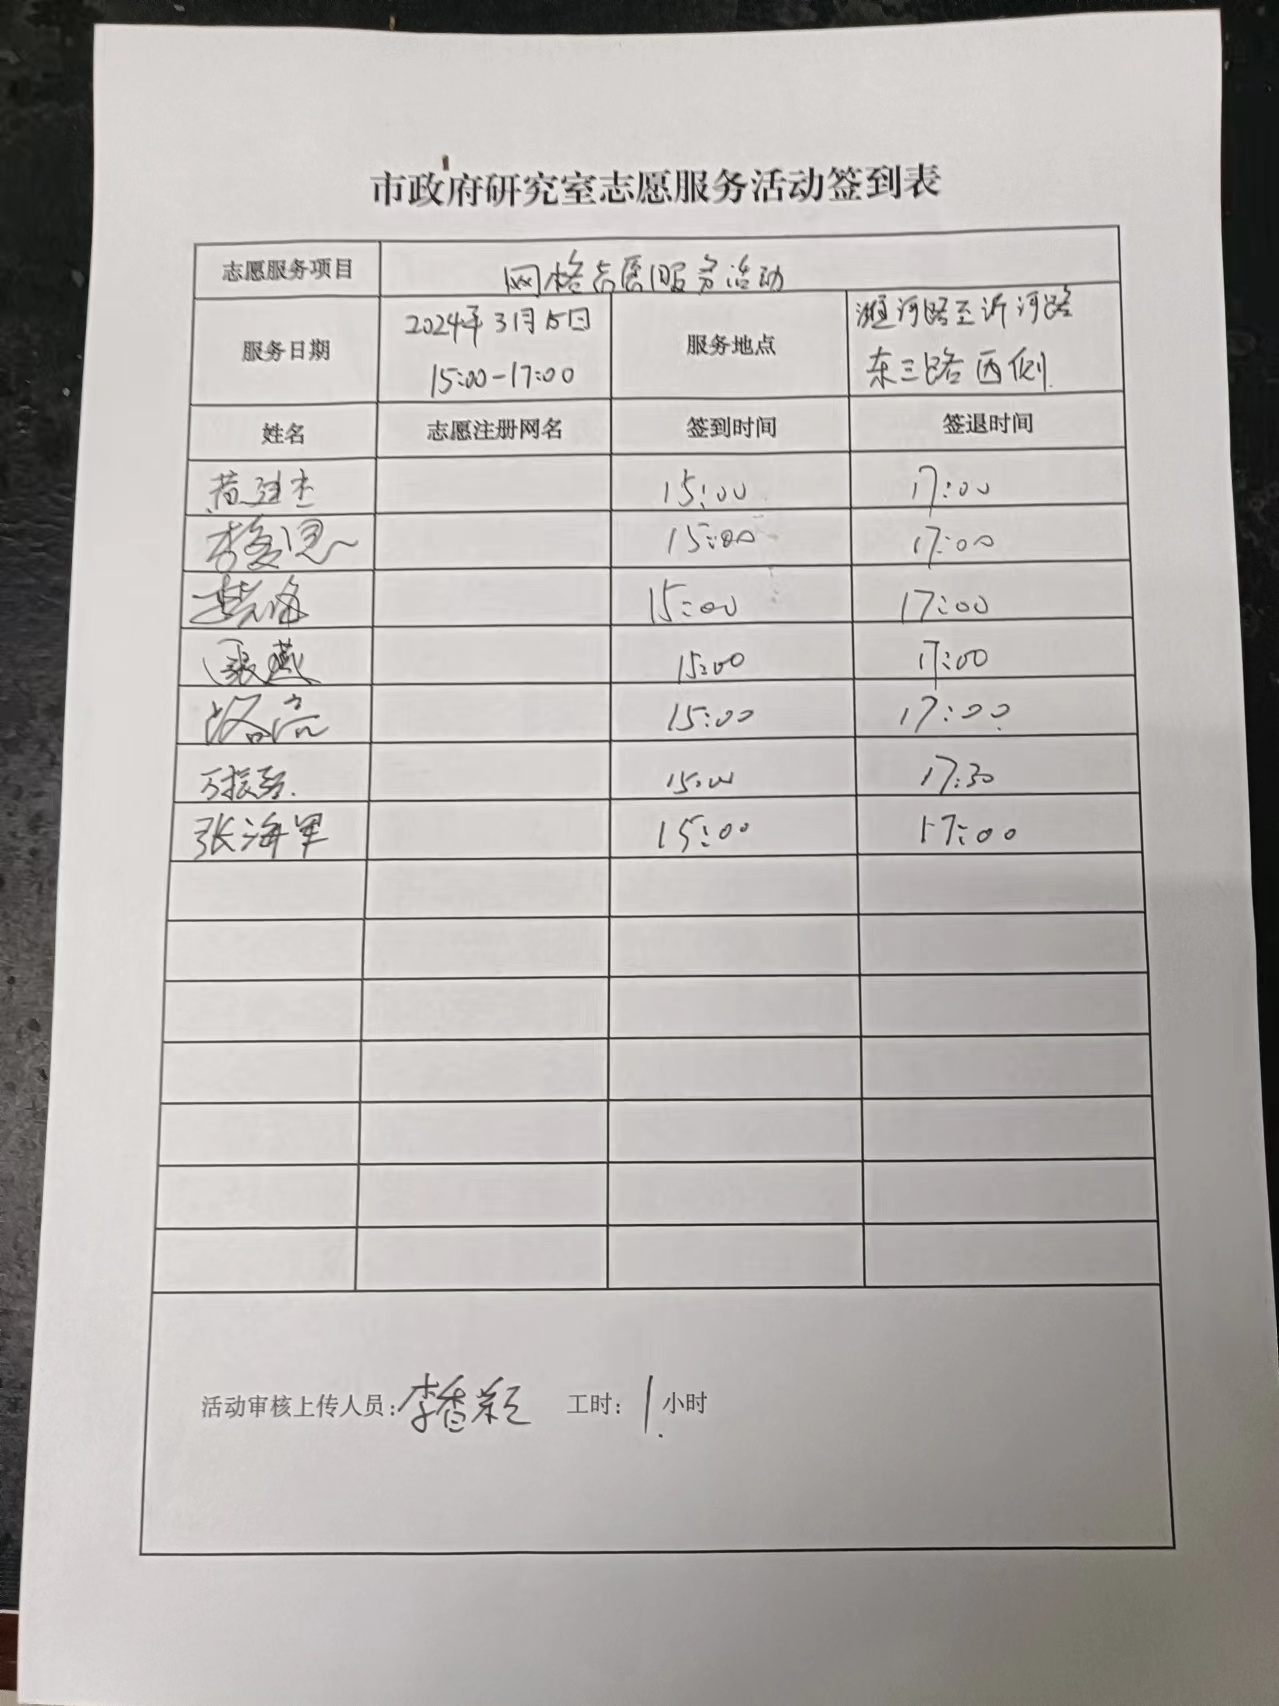 市政府研究室志愿服务活动签到表
志愿服务项目 网格志愿服务活动
服务日期 2024年3月15日 15:00-17:00 服务地点 淮河路至沂河路 东三路西侧
姓名 志愿注册网名 签到时间 签退时间
15:00 17:00
15:00 17:00
15:00 17:00
张燕 15:00 17:00
15:00 17:00
15:00 17:30
张海军 15:00 17:00
活动审核上传人员: 李香颖 工时: 1 小时